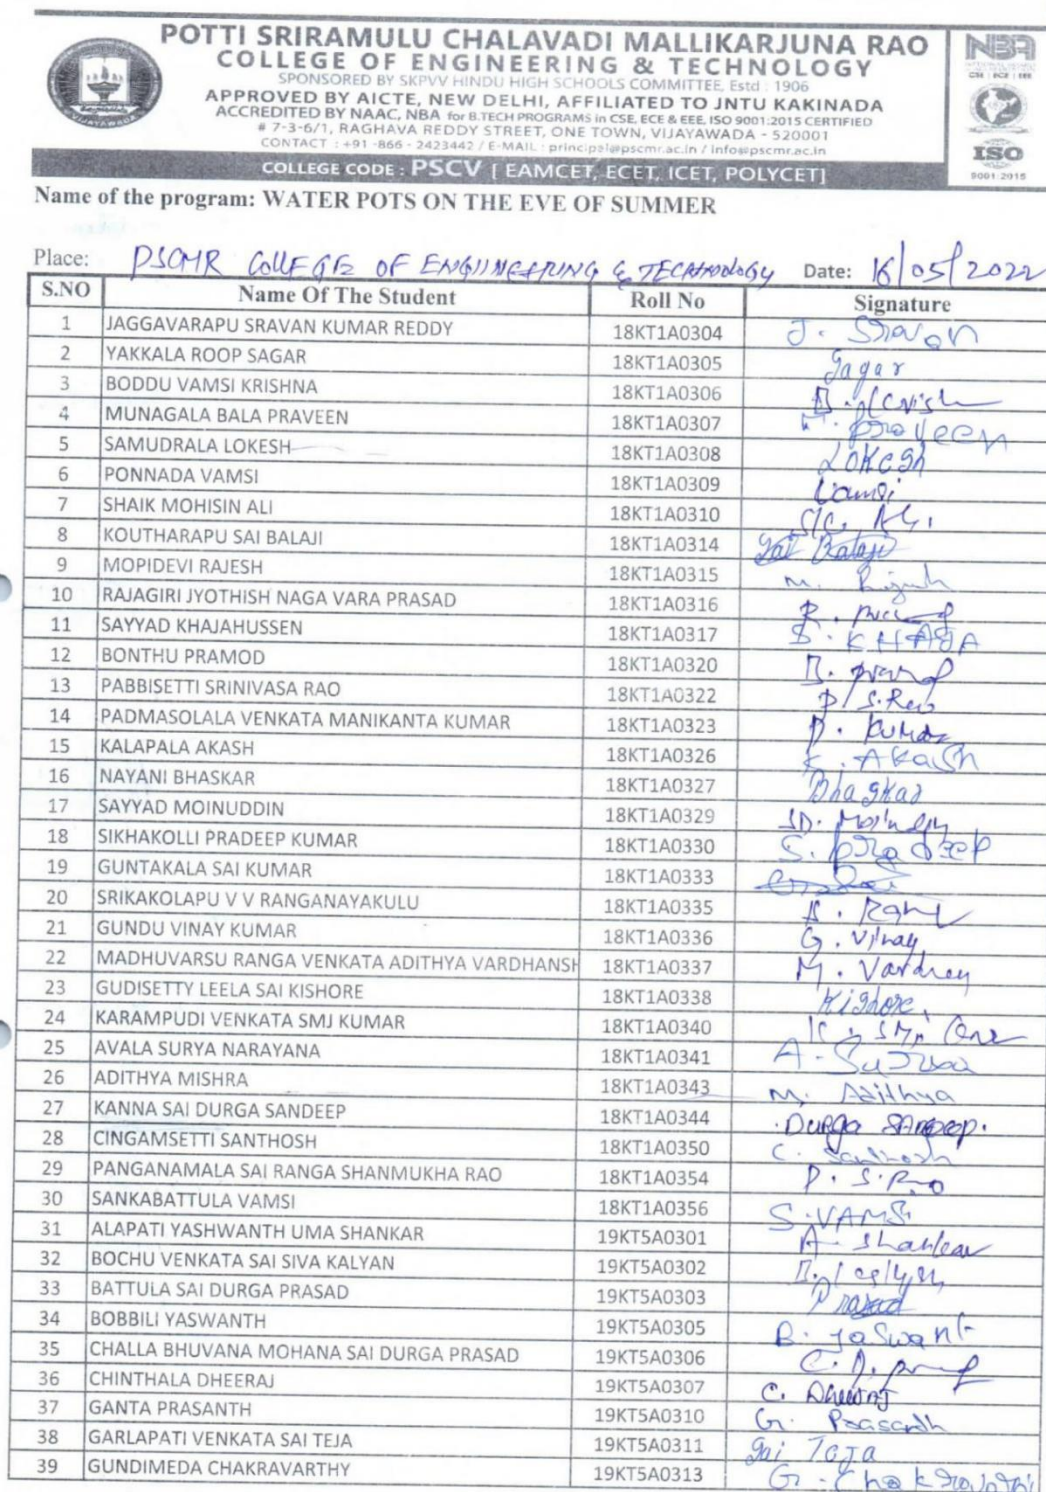 POTTI SRIRAMULU CHALAVADI MALLIKARJUNA RAO
COLLEGE OF ENGINEERING & TECHNOLOGY
SPONSORED BY SKPVV HINDU HIGH SCHOOLS COMMITTEE, Estd : 1906
APPROVED BY AICTE, NEW DELHI, AFFILIATED TO JNTU KAKINADA
ACCREDITED BY NAAC, NBA for B.TECH PROGRAMS in CSE, ECE & EEE, ISO 9001:2015 CERTIFIED
# 7-3-6/1, RAGHAVA REDDY STREET, ONE TOWN, VIJAYAWADA - 520001
CONTACT : +91 -866 - 2423442 / E-MAIL : principal@pscmr.ac.in / info@pscmr.ac.in
COLLEGE CODE : PSCV [ EAMCET, ECET, ICET, POLYCET]
VIJAYAWADA
NBA
CSE | ECE | EEE
ISO
9001:2015
Name of the program: WATER POTS ON THE EVE OF SUMMER
Place: PSCMR COLLEGE OF ENGINEERING & TECHNOLOGY Date: 16/05/2022
S.NO Name Of The Student Roll No Signature
1 JAGGAVARAPU SRAVAN KUMAR REDDY 18KT1A0304 J. Sravan
2 YAKKALA ROOP SAGAR 18KT1A0305 Sagar
3 BODDU VAMSI KRISHNA 18KT1A0306
4 MUNAGALA BALA PRAVEEN 18KT1A0307 M. Praveen
5 SAMUDRALA LOKESH 18KT1A0308 Lokesh
6 PONNADA VAMSI 18KT1A0309 Vamsi
7 SHAIK MOHISIN ALI 18KT1A0310
8 KOUTHARAPU SAI BALAJI 18KT1A0314 Sai Balaji
9 MOPIDEVI RAJESH 18KT1A0315 M. Rajesh
10 RAJAGIRI JYOTHISH NAGA VARA PRASAD 18KT1A0316
11 SAYYAD KHAJAHUSSEN 18KT1A0317 S. KHAJA
12 BONTHU PRAMOD 18KT1A0320
13 PABBISETTI SRINIVASA RAO 18KT1A0322 P. S. Rao
14 PADMASOLALA VENKATA MANIKANTA KUMAR 18KT1A0323 P. Kumar
15 KALAPALA AKASH 18KT1A0326 K. Akash
16 NAYANI BHASKAR 18KT1A0327 Bhaskar
17 SAYYAD MOINUDDIN 18KT1A0329
18 SIKHAKOLLI PRADEEP KUMAR 18KT1A0330 S. Pradeep
19 GUNTAKALA SAI KUMAR 18KT1A0333
20 SRIKAKOLAPU V V RANGANAYAKULU 18KT1A0335
21 GUNDU VINAY KUMAR 18KT1A0336 G. Vinay
22 MADHUVARSU RANGA VENKATA ADITHYA VARDHANSH 18KT1A0337 M. Vardhan
23 GUDISETTY LEELA SAI KISHORE 18KT1A0338 Kishore
24 KARAMPUDI VENKATA SMJ KUMAR 18KT1A0340
25 AVALA SURYA NARAYANA 18KT1A0341 A. Surya
26 ADITHYA MISHRA 18KT1A0343 M. Adithya
27 KANNA SAI DURGA SANDEEP 18KT1A0344 Durga Sandeep.
28 CINGAMSETTI SANTHOSH 18KT1A0350 C. Santhosh
29 PANGANAMALA SAI RANGA SHANMUKHA RAO 18KT1A0354 P. S. Rao
30 SANKABATTULA VAMSI 18KT1A0356 S. VAMSI
31 ALAPATI YASHWANTH UMA SHANKAR 19KT5A0301 A. Shankar
32 BOCHU VENKATA SAI SIVA KALYAN 19KT5A0302 B. Kalyan
33 BATTULA SAI DURGA PRASAD 19KT5A0303 Prasad
34 BOBBILI YASWANTH 19KT5A0305 B. Yaswanth
35 CHALLA BHUVANA MOHANA SAI DURGA PRASAD 19KT5A0306
36 CHINTHALA DHEERAJ 19KT5A0307 C. Dheeraj
37 GANTA PRASANTH 19KT5A0310 G. Prasanth
38 GARLAPATI VENKATA SAI TEJA 19KT5A0311 Sai Teja
39 GUNDIMEDA CHAKRAVARTHY 19KT5A0313 G. Chakravarthi